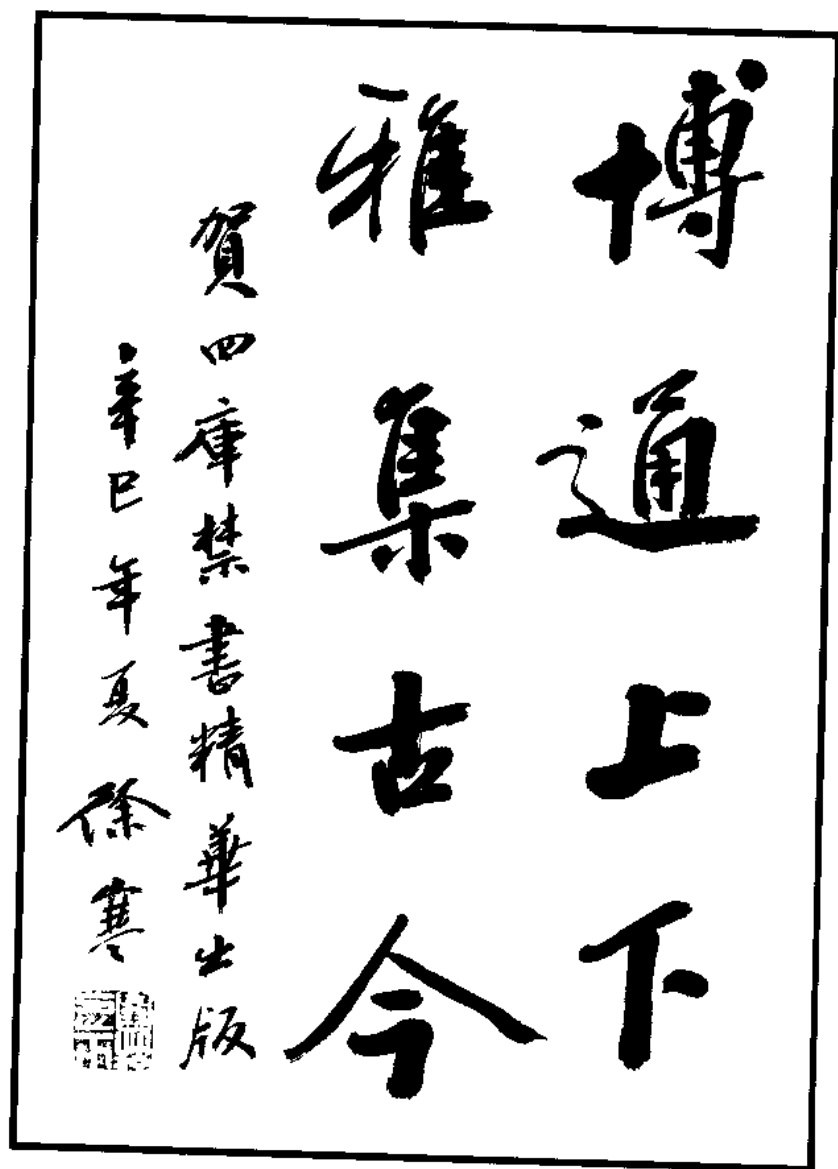 博通上下
雅集古今
賀四庫禁書精華出版
辛巳年夏 徐寒